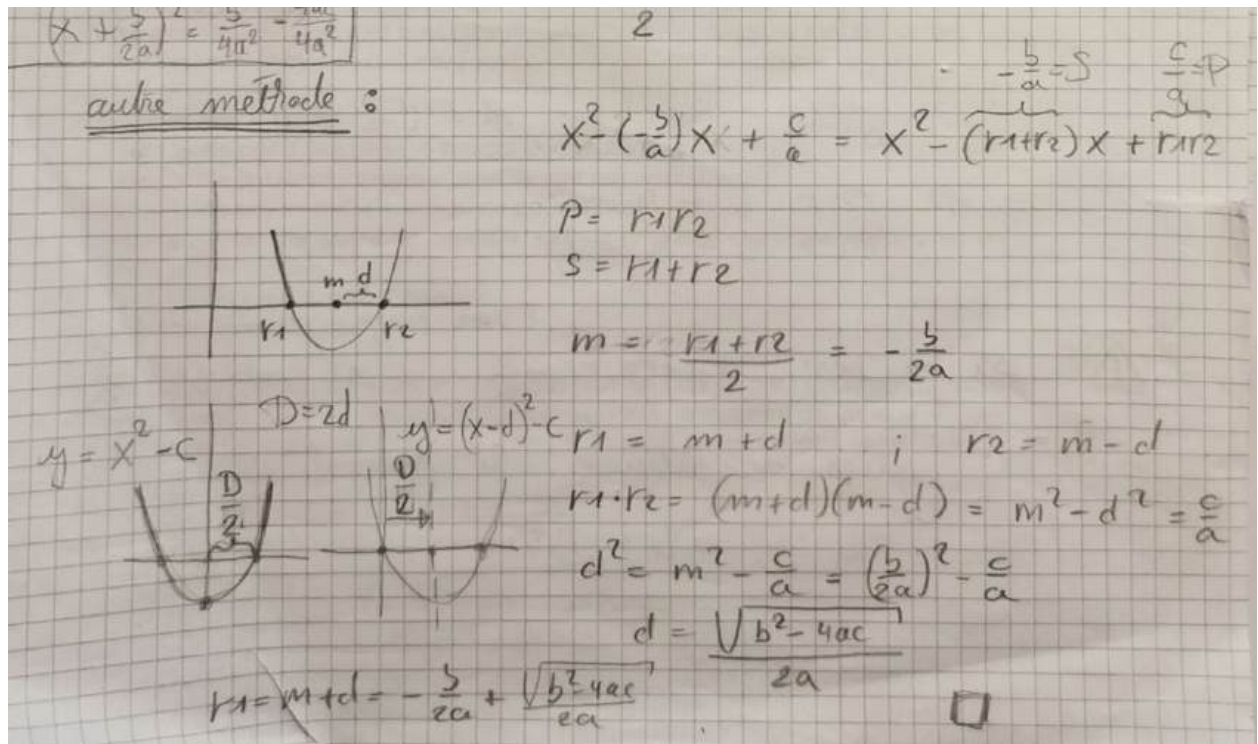 (x + b/2a)² = b²/4a² - 4ac/4a²
2
autre methode :
-b/a = S    c/a = P
x² - (-b/a)x + c/a = x² - (r1+r2)x + r1r2
P = r1r2
S = r1+r2
m d
r1 r2
m = (r1+r2)/2 = -b/2a
D=2d
y = x² - c
y = (x-d)² - c
r1 = m + d ; r2 = m - d
D/2
D/2
r1·r2 = (m+d)(m-d) = m² - d² = c/a
d² = m² - c/a = (b/2a)² - c/a
d = √(b² - 4ac)/2a
r1 = m+d = -b/2a + √(b²-4ac)/2a